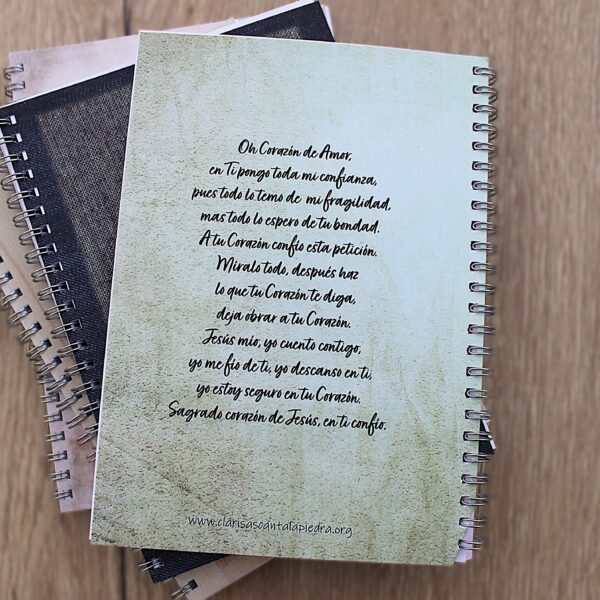 Oh Corazón de Amor,
en Ti pongo toda mi confianza,
pues todo lo temo de mi fragilidad,
mas todo lo espero de tu bondad.
A tu Corazón confío esta petición.
Míralo todo, después haz
lo que tu Corazón te diga,
deja obrar a tu Corazón.
Jesús mío, yo cuento contigo,
yo me fío de ti, yo descanso en ti,
yo estoy seguro en tu Corazón.
Sagrado corazón de Jesús, en ti confío.
www.clarisasoantalapiedra.org